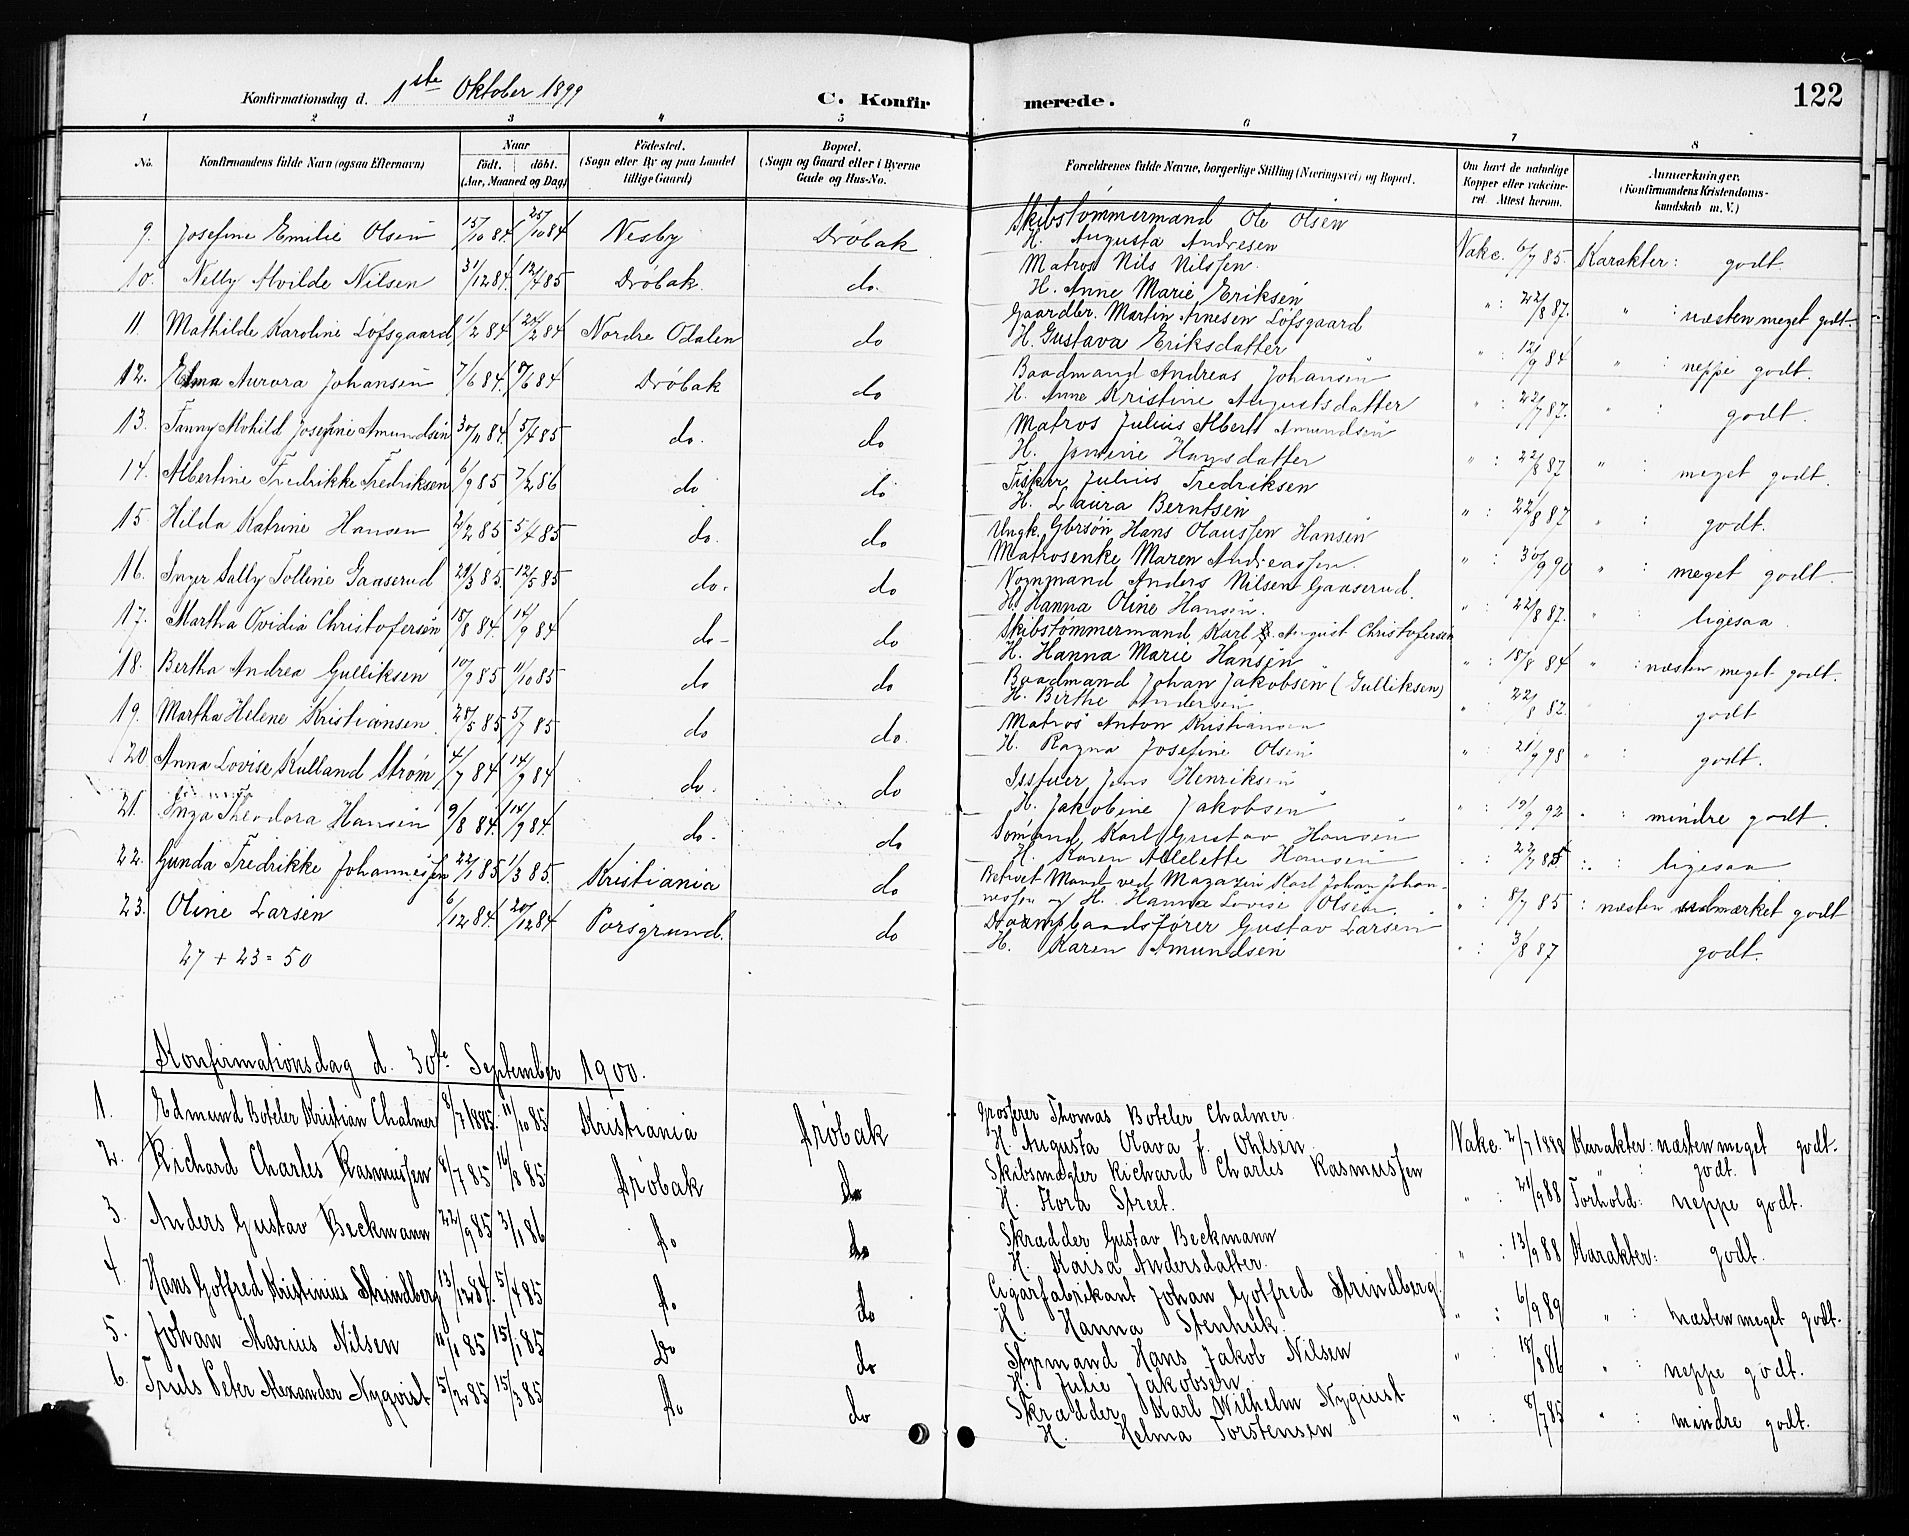 Konfirmationsdag d. 1ste Oktober 1899
C. Konfirmerede.
122
1 2 3 4 5 6 7 8
No. Konfirmandens fulde Navn (ogsaa Efternavn) Naar født. døbt. (Aar, Maaned og Dag) Fødested. (Sogn eller By og paa Landet tillige Gaard) Bopæl. (Sogn og Gaard eller i Byerne Gade og Hus-No. Forældrenes fulde Navne, borgerlige Stilling (Næringsvei) og Bopæl. Om havt de naturlige Kopper eller vaccineret. Attest herom. Anmærkninger. (Konfirmandens Kristendomskundskab m. V.)
9. Josefine Emilie Olsen 15/10 84. 25/10 84 Nesby Drøbak Skibstømmermand Ole Olsen
H. Augusta Andresen Vakc. 6/7 85. Karakter: godt.
10. Nelly Alvilde Nilsen 31/12 84. 12/4 85 Drøbak. do. Matros Nils Nilssen.
H. Anne Marie Eriksen " : 22/8 87. " : næsten meget godt.
11. Mathilde Karoline Løfsgaard 1/2 84 24/2 84 Nordre Odalen do Gaardbr. Martin Arnesen Løfsgaard
H. Gustava Eriksdatter " : 12/9 84 " : neppe godt.
12. Elma Aurora Johansen 7/6 84. /6 84 Drøbak do Baadmand Andreas Johansen
H. Anne Kristine Augustsdatter " : 22/7 87. " : godt.
13. Fanny Alvhild Josefine Amundsen 30/11 84. 5/4 85 do. do Matros Julius Albert Amundsen
H. Jonine Hansdatter " : 22/8 87 " : meget godt.
14. Albertine Fredrikke Fredriksen 6/9 85 7/2 86 do do Fisker Julius Fredriksen
H. Laura Berntsen " : 22/8 87 " : godt.
15. Hilda Katrine Hansen 2/2 85 5/4 85 do. do Ungk. Gbrsøn Hans Olaussen Hansen
Matrosenke Maren Andreassen " : 30/9 90 " : meget godt.
16. Inger Sally Tolline Gaaserud 29/3 85. 12/5 85 do. do Vognmand Anders Nilsen Gaaserud.
H. Hanna Oline Hansen. " : 22/8 87. " : ligesaa.
17. Martha Ovidia Christofersen 18/8 84. 14/9 84 do do Skibstømmermand Karl August Christofersen
H. Hanna Marie Hansen " : 18/8 84 " : næsten meget godt.
18. Bertha Andrea Gulliksen 10/9 85 11/10 85 do do Baadmand Johan Jakobsen (Gulliksen)
H. Birthe Andersen " : 22/8 82. godt
19. Martha Helene Kristiansen. 28/5 85 5/7 85 do do. Matros Anton Kristiansen
H. Ragna Josefine Olsen " : 21/9 98 " : godt.
20 Anna Lovise Kulland Strøm 4/7 84 14/9 84 do. do Jens Henriksen
H. Jakobine Jakobsen " : 19/9 92 " : mindre godt.
21. Inga Theodora Hansen 9/8 84. 14/9 84. do. do Sømand Karl Gustav Hansen
H. Karen Hansen " : 22/7 85 " : ligesaa
22. Gunda Fredrikke Johannessen 22/1 85 1/3 85. Kristiania do Betroet Mand ved Magazin Karl Johan Johannessen og H. Hanna Lovise Olsen. " : 8/7 85 : næsten udmærket godt
23. Oline Larsen 6/12 84. 20/12 84 Porsgrund. do Dampbaadsfører Gustav Larsen
H. Karen Amundsen " : 3/8 87 godt.
27 + 23 = 50
Konfirmationsdag d. 30te September 1900.
1. Edmund Boteler Kristian Chalmer 8/7 1885. 11/10 85 Kristiania Drøbak Grosserer Thomas Boteler Chalmer.
H. Augusta Olava J. Ohlsen Vakc. 2/7 1888 Karakter: næsten meget godt.
2. Richard Charles Rasmussen 8/7 85 16/8 85 Drøbak do Skibsmægler Richard Charles Rasmussen godt.
H. Flora Street. " : 21/9 88 Forhold: neppe godt.
3. Anders Gustav Beckmann 22/9 85 3/1 86 do do Skrædder Gustav Beckmann
H. Kaisa Andersdatter. " : 13/9 88 Karakter: godt.
4. Hans Gotfred Kristinius Strindberg 13/12 84. 5/4 85 do do Cigarfabrikant Johan Gotfred Strindberg.
H. Hanna Stenhuk. " : 6/9 89 " : næsten meget godt.
5. Johan Marius Nilsen 11/1 85 15/1 85 Do do Styrmand Hans Jakob Nilsen
H. Julie Jakobsen " : 18/8 86 " : neppe godt.
6. Truls Peter Alexander Nyqvist 5/2 85 15/3 85 do do Skrædder Karl Wilhelm Nyqvist
H. Helma Torstensen " : 8/7 85 " : mindre godt.